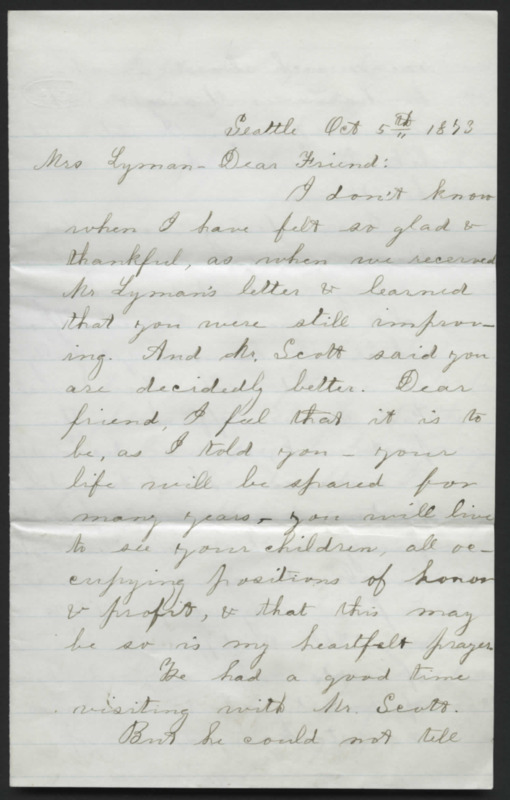 Seattle Oct 5th 1873
Mrs Lyman - Dear Friend:
I don't know
when I have felt so glad &
thankful, as when we received
Mr Lyman's letter & learned
that you were still improv-
ing. And Mr. Scott said you
are decidedly better. Dear
friend, I feel that it is to
be, as I told you - your
life will be spared for
many years, you will live
to see your children, all oc-
cupying positions of honor
& profit, & that this may
be so is my heartfelt prayer.
We had a good time
visiting with Mr. Scott.
But he could not tell